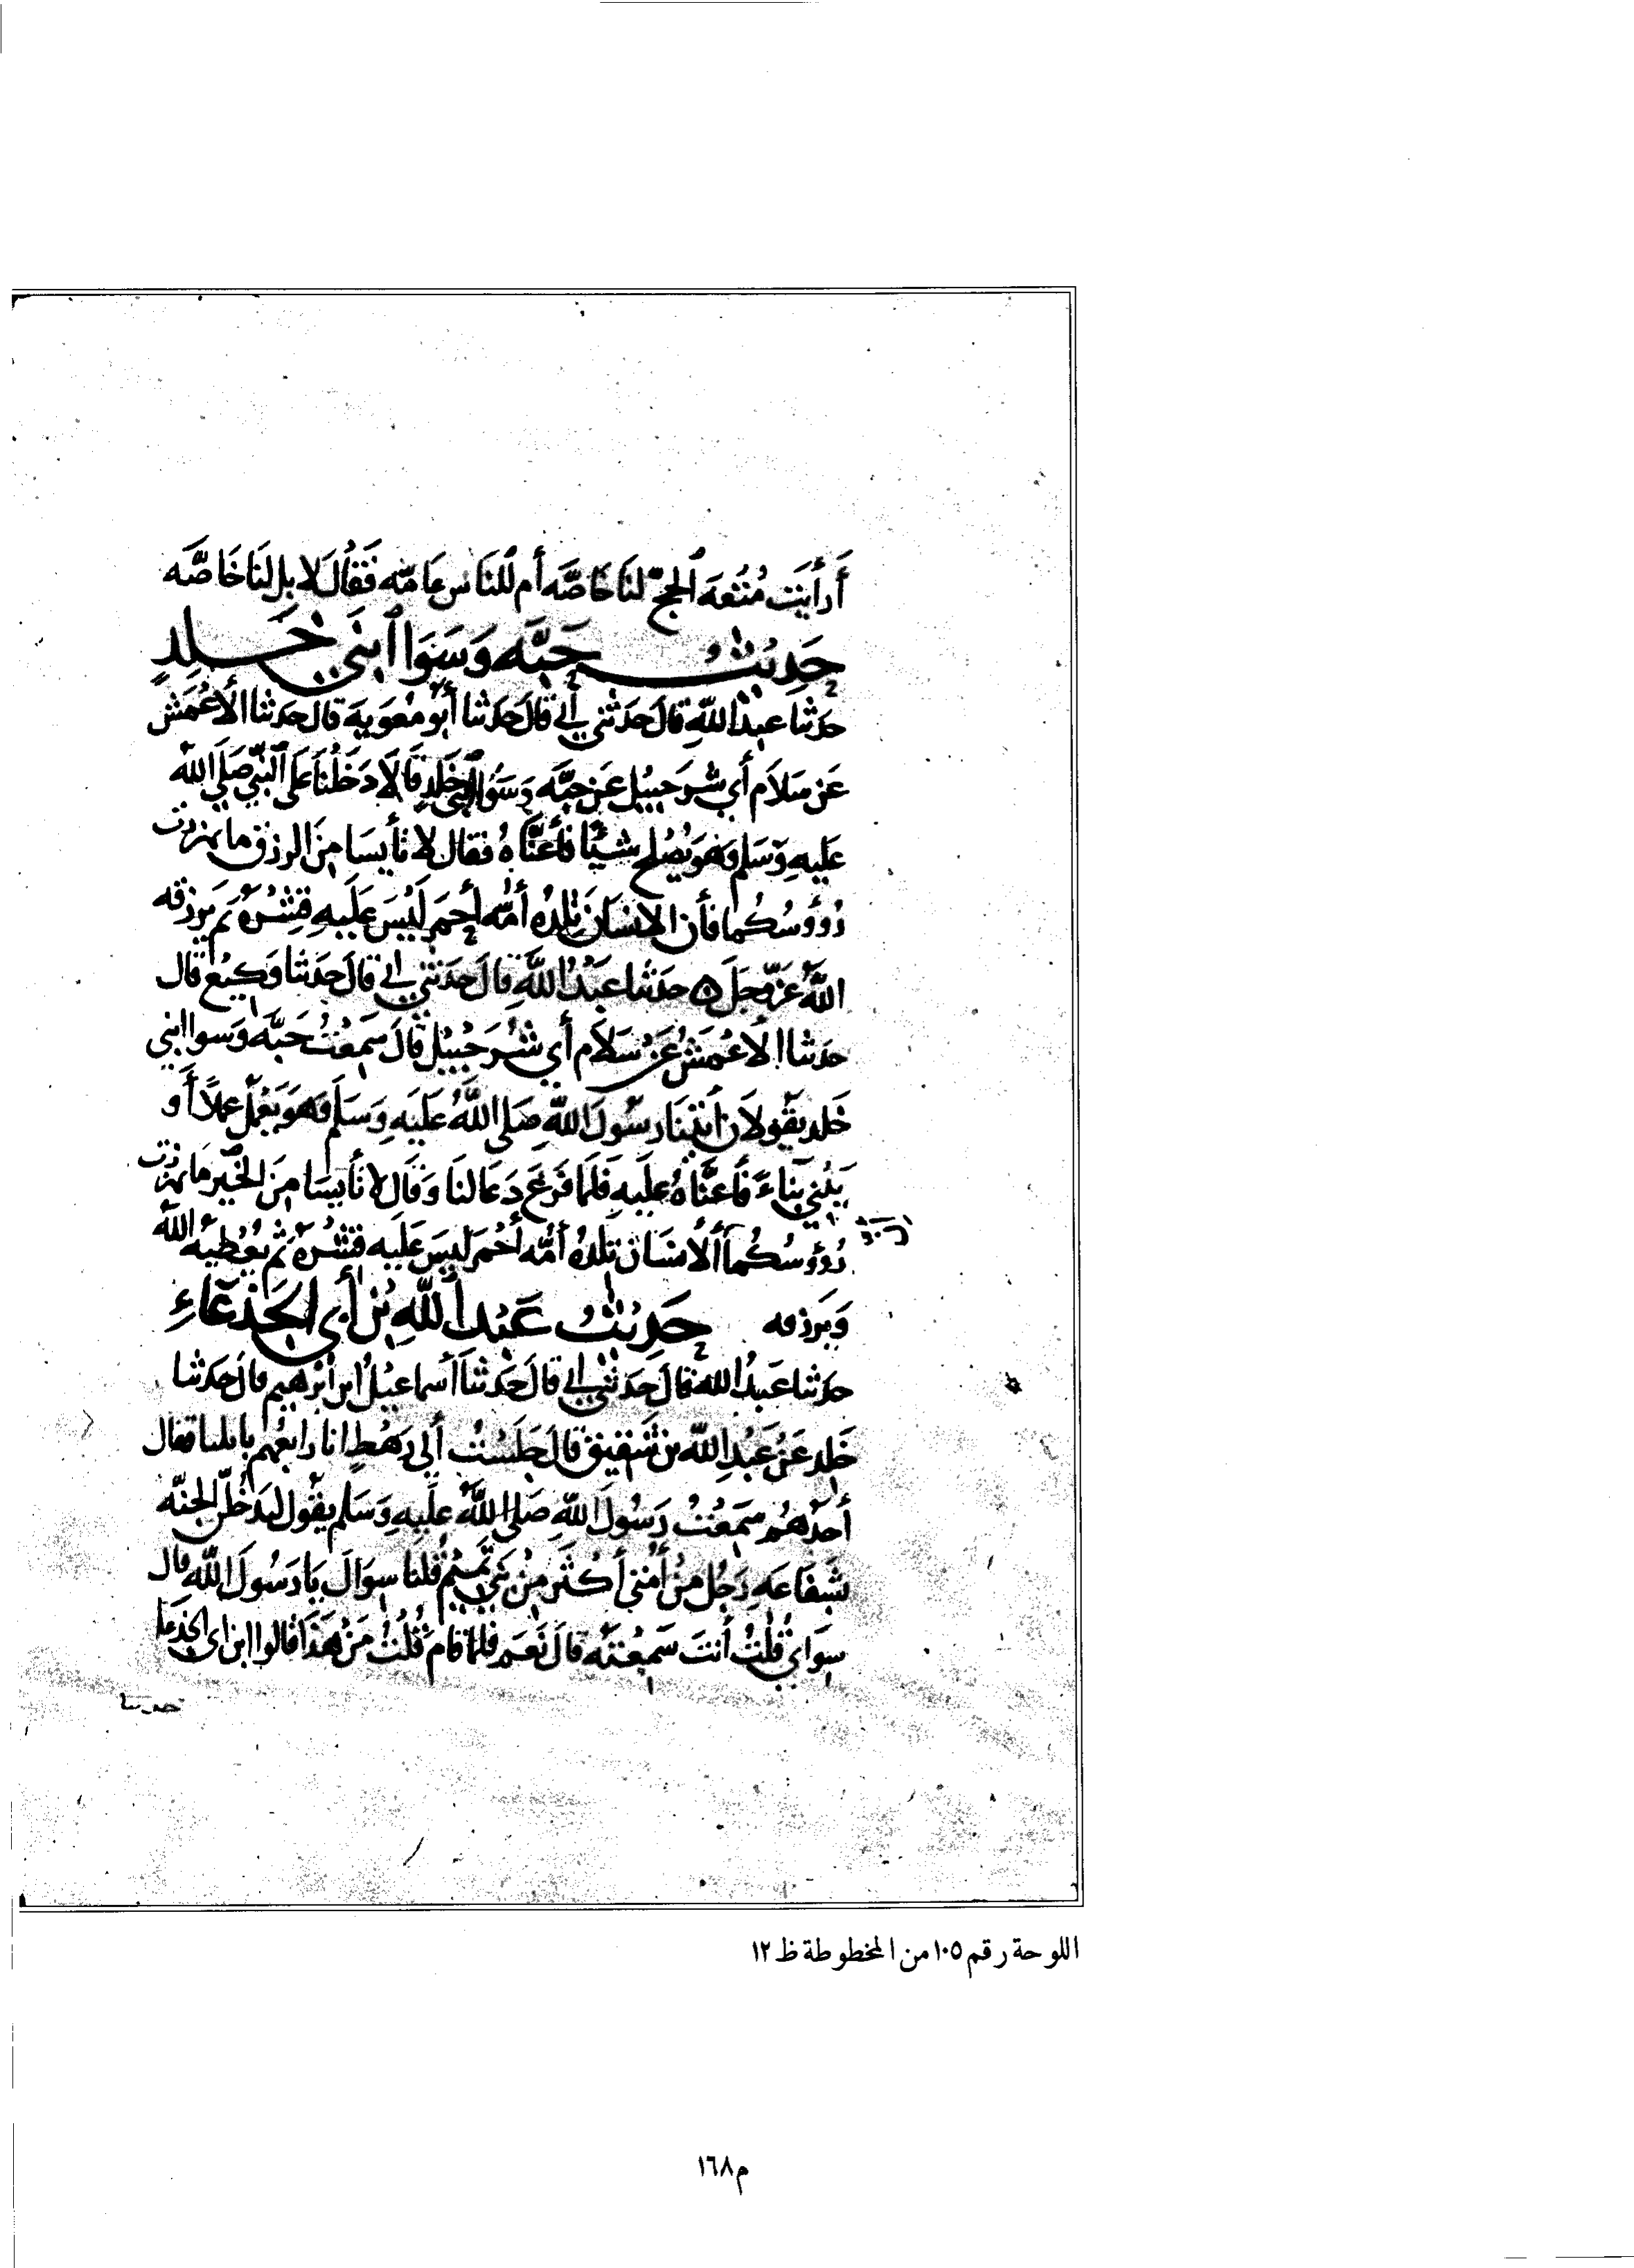 أَرأيت مُتْعَةَ الحجّ لنَا خَاصَّه أم للنَاس عَامّه فَقَالَ لا بل لنَا خَاصَّه
حَدِيثُ حَبَّه وَسَوَا ابنَي خَلدٍ
حدثنا عبد اللَّهِ قالَ حَدثني أبي قالَ حَدَثنا أبو مُعَوية قال حدثنا الأعْمَش
عَن سَلاَم أبي شُرَحبيل عَن حبَّه وَسَوَا ابني خَلد قالاَ دَخَلْنا عَلَى النَّبِيّ صَلى الله
عَليهِ وَسَلم وَهو يُصْلح شيئًا فأعنَّاهُ فقال لا تأيسَا مِنَ الرزق ما تهززت
رُؤوسُكُما فأن الإنسَان تلدُه أمُّه أحمر لَيْسَ عَلَيهِ قِشْرُه ثم يَرزقه
اللَّهُ عَزَّ وَجَلَّ ۞ حدثنا عَبْدُ اللَّهِ قالَ حَدثني أبي قالَ حدَثنا وَكيعُ قال
حدثنا الأعْمَشُ عَنْ سَلاَم أبي شُرَحْبيْل قالَ سَمِعْتُ حَبَّه وَسوا ابني
خَلد يقولاَن أَتينَا رسُولَ اللَّهِ صَلى اللَّهُ عَلَيهِ وَسَلم وَهوَ يَعْمل عملاً أَو
يَبْني بنَاءً فأعَنَّاهُ عليهِ فَلَما فرغَ دَعَا لنَا وَقَال لا تأيسَا مِنَ الخَير مَا تهززت
رُؤوسُكُما أن الأنسَان تلدُه أمُّه أحْمر ليسَ عَليه قشْرُه ثم يُعْطيه اللَّه
وَيَرزقه حَدِيثُ عَبْد اللَّهِ بْنِ أبي الجَذعَاءِ
حدثنا عَبدُ اللَّه قال حَدثني أبي قالَ حَدَثنا أسماعيلُ ابن ابْرهيم قالَ حَدثنا
خَلد عَنْ عَبْدِ اللَّه بن شَقِيق قالَ جَلَسْتُ ألى رَهْطٍ انا رابعُهم بايليا فقال
أحدُهُم سَمِعْتُ رَسُولَ اللَّهِ صَلى اللَّهُ عَلَيهِ وَسَلم يقول ليَدخُلَنّ الجنَّه
بشفَاعَه رَجُل مِنْ أُمَّتي أكثر مِنْ بَني تَميْم قُلنا سِوَاكَ يا رَسُولَ اللَّه قال
سِوَاي قُلْتُ أنتَ سَمِعْتَه قالَ نَعَم فلمَّا قامَ قُلتُ مَنْ هَذا قالوا ابن ابي الجذعا
حدثنا
اللوحة رقم ١٠٥ من المخطوطة ظ ١٢
م ١٦٨